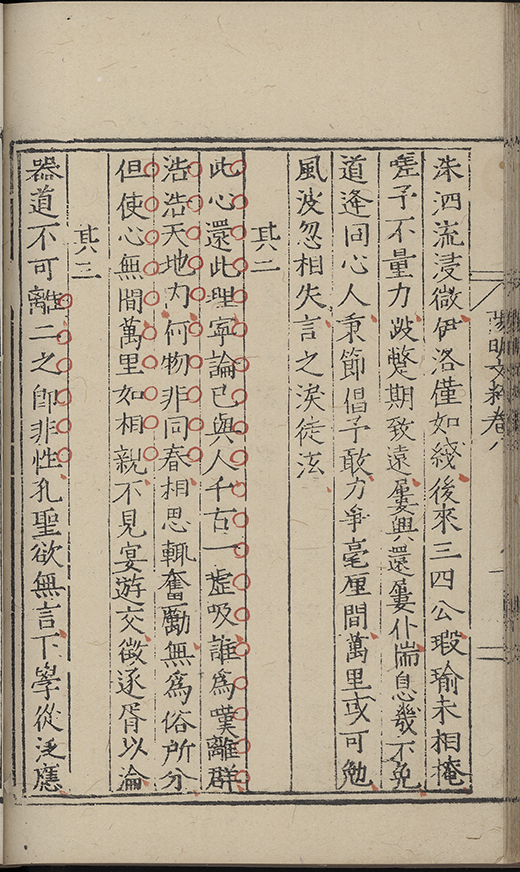 洙泗流浸微伊洛僅如綫後來三四公瑕瑜未相掩
嗟予不量力跛蹩期致遠屢興還屢仆惴息幾不免
道逢同心人秉節倡予敢力爭毫厘間萬里或可勉
風波忽相失言之淚徒泫
其二
此心還此理寧論已與人千古一噓吸誰爲嘆離群
浩浩天地內何物非同春相思輒奮勵無爲俗所分
但使心無間萬里如相親不見宴遊交徵逐胥以淪
其三
器道不可離二之即非性孔聖欲無言下學從泛應
陽明文粹卷八